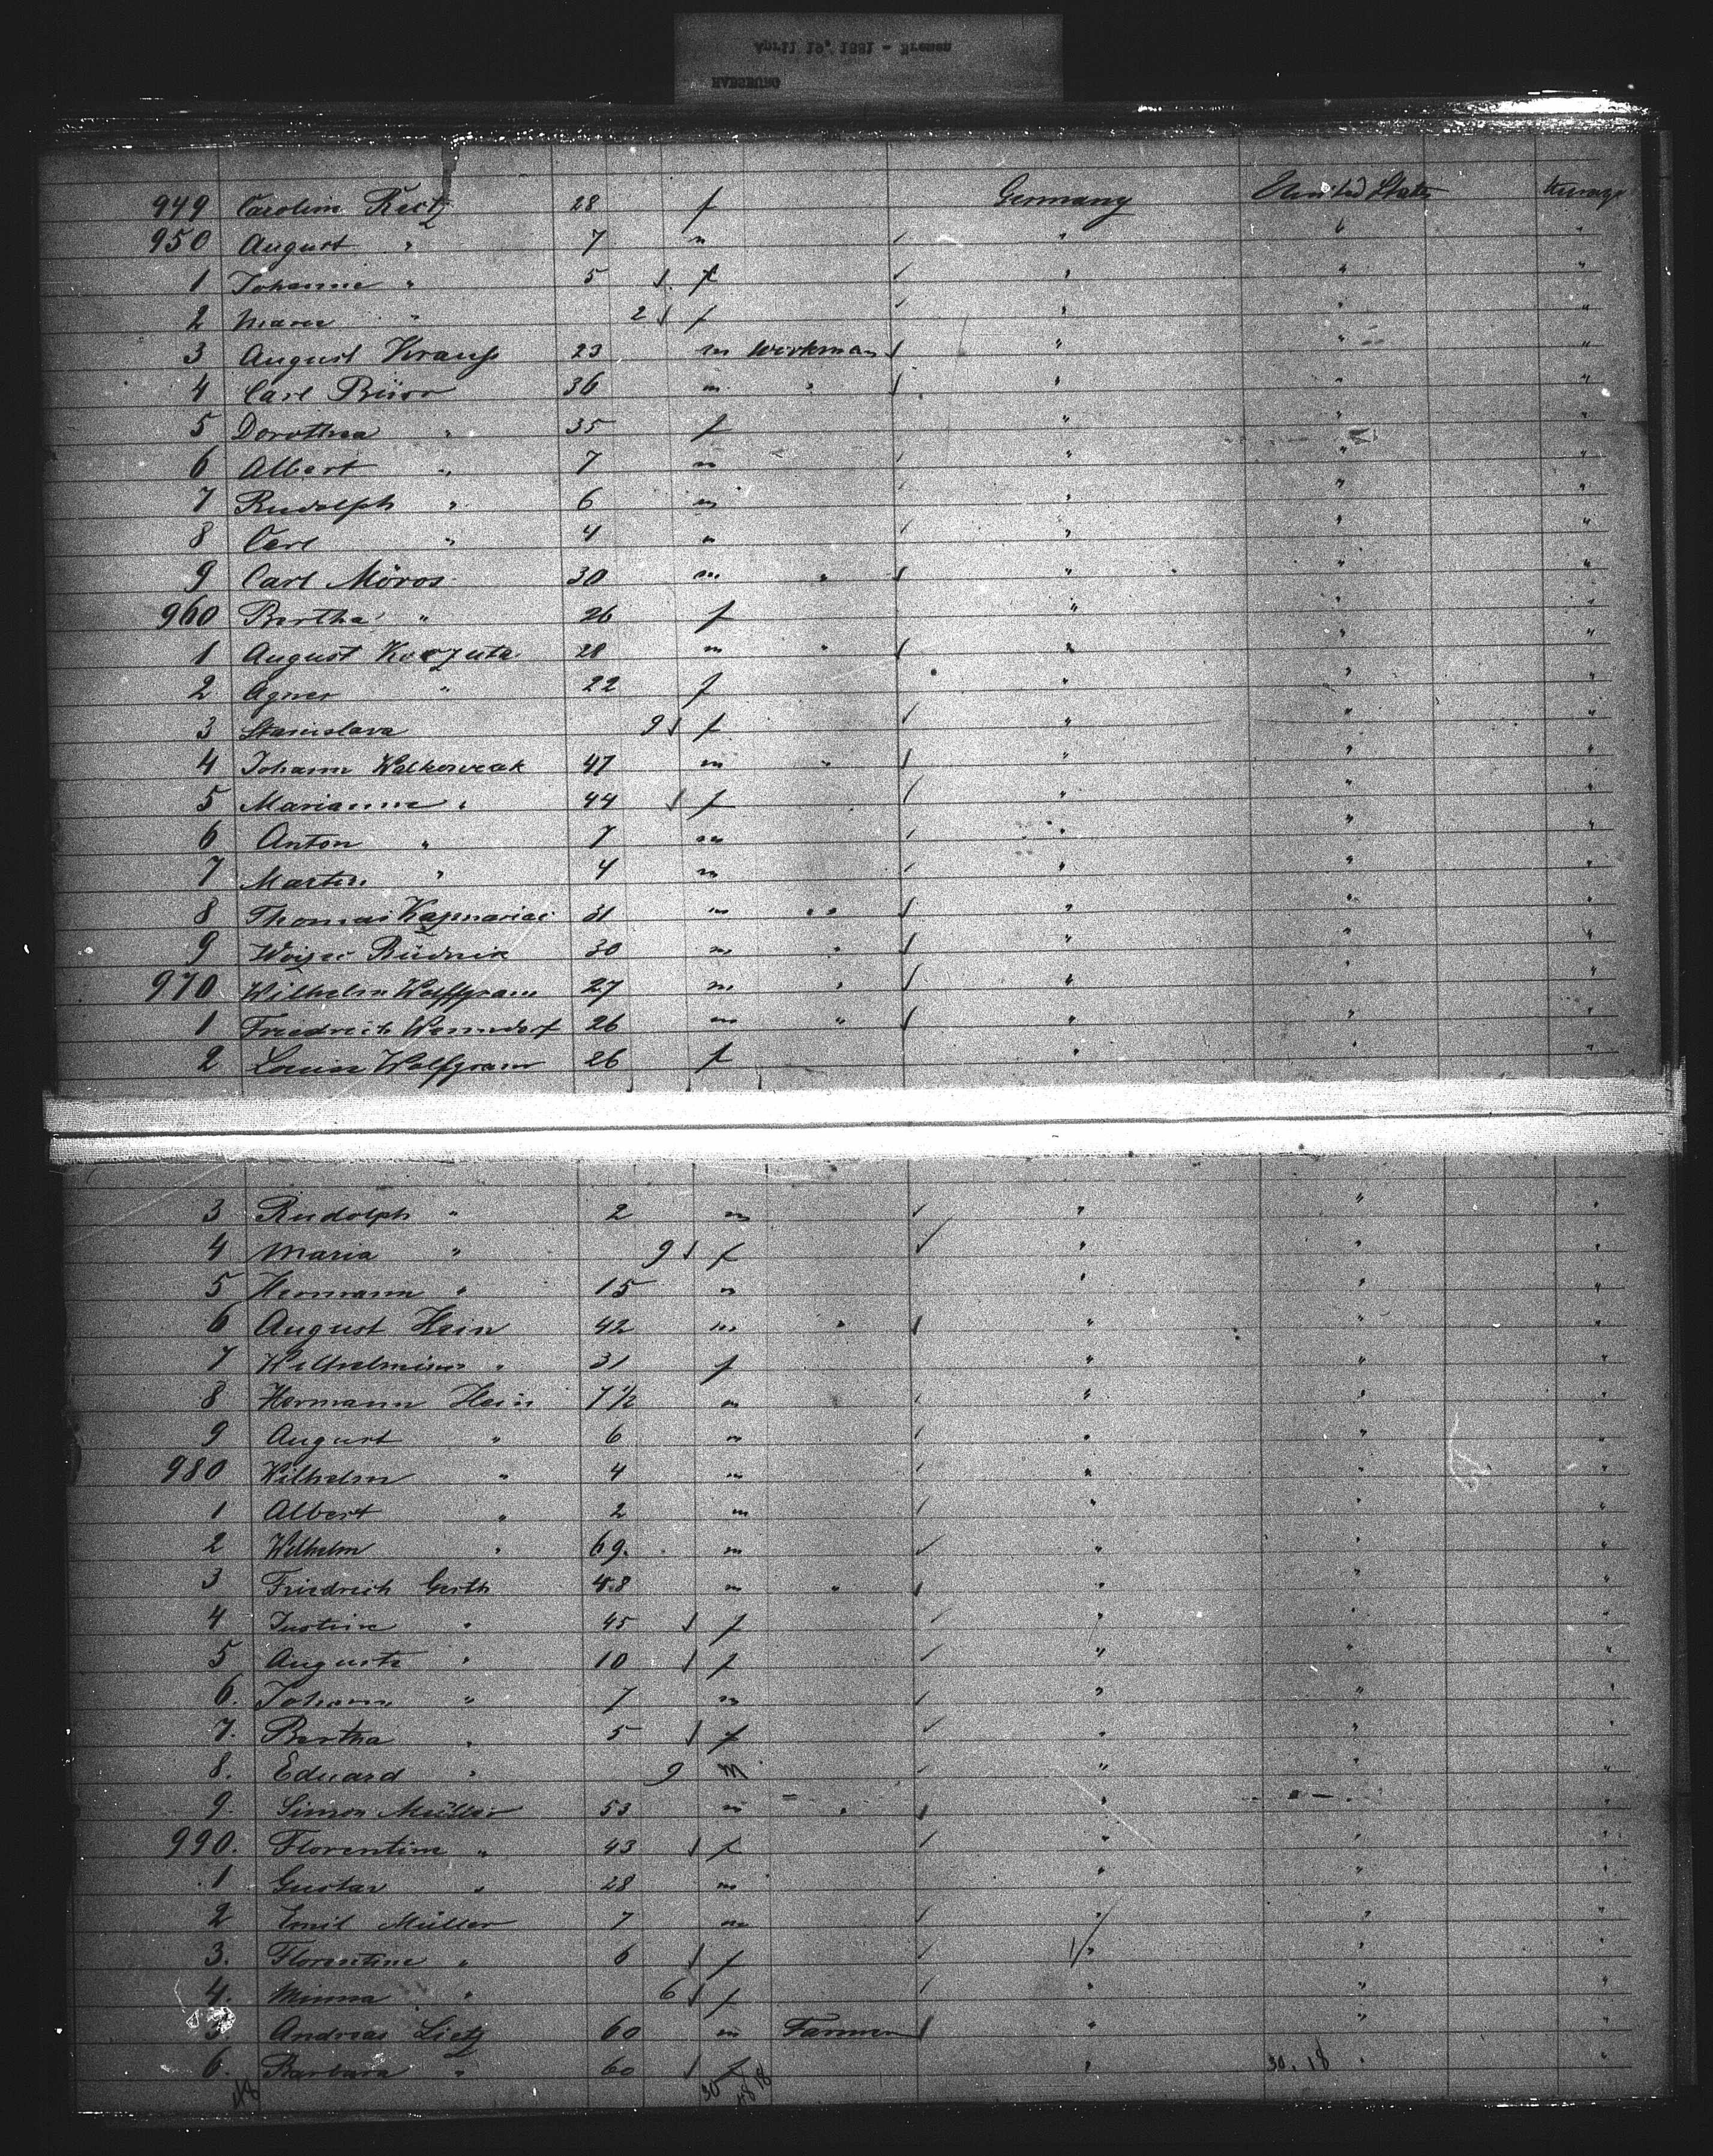 April 19, 1881 - Bremen
HABSBURG
949 Caroline Rietz 28 f Germany United States Steerage
950 August " 7 m " " "
1 Johanna " 5 f " " "
2 Marie " 2 f " " "
3 August Krauß 23 m Workman " " "
4 Carl 36 m " " " "
5 Dorothea " 35 f " " "
6 Albert " 7 m " " "
7 Rudolph " 6 m " " "
8 Carl " 4 m " " "
9 Carl Möros 30 m " " " "
960 Bertha " 26 f " " "
1 August 28 m " " " "
2 Agnes " 22 f " " "
3 Stanislava 9 f " " "
4 Johann Walkowiak 47 m " " " "
5 Marianne " 44 f " " "
6 Anton " 7 m " " "
7 Martin " 4 m " " "
8 Thomas 31 m " " " "
9 Büdnik 30 m " " " "
970 Wilhelm Wolffgram 27 m " " " "
1 Friedrich 26 m " " " "
2 Louise Wolfgram 26 f " " "
3 Rudolph " 2 m " " "
4 Maria " 9 f " " "
5 Hermann " 15 m " " "
6 August Hein 42 m " " " "
7 Wilhelmine " 31 f " " "
8 Hermann Hein 7 1/2 m " " "
9 August " 6 m " " "
980 Wilhelm " 4 m " " "
1 Albert " 2 m " " "
2 Wilhelm " 69. m " " "
3 Friedrich Gerth 48 m " " " "
4 Justine " 45 f " " "
5 Auguste " 10 f " " "
6. Johann " 7 m " " "
7. Bertha " 5 f " " "
8. Eduard " 9 m " " "
9. Simon Müller 53 m " " " "
990. Florentine " 43 f " " "
1 Gustav " 28 m " " "
2 Emil Müller 7 m " " "
3. Florentine " 6 f " " "
4. Minna " 6 f " " "
5 Andreas Lietz 60 m Farmer " " "
6. Barbara " 60 f " 30. 18 " "
48 30 18 18